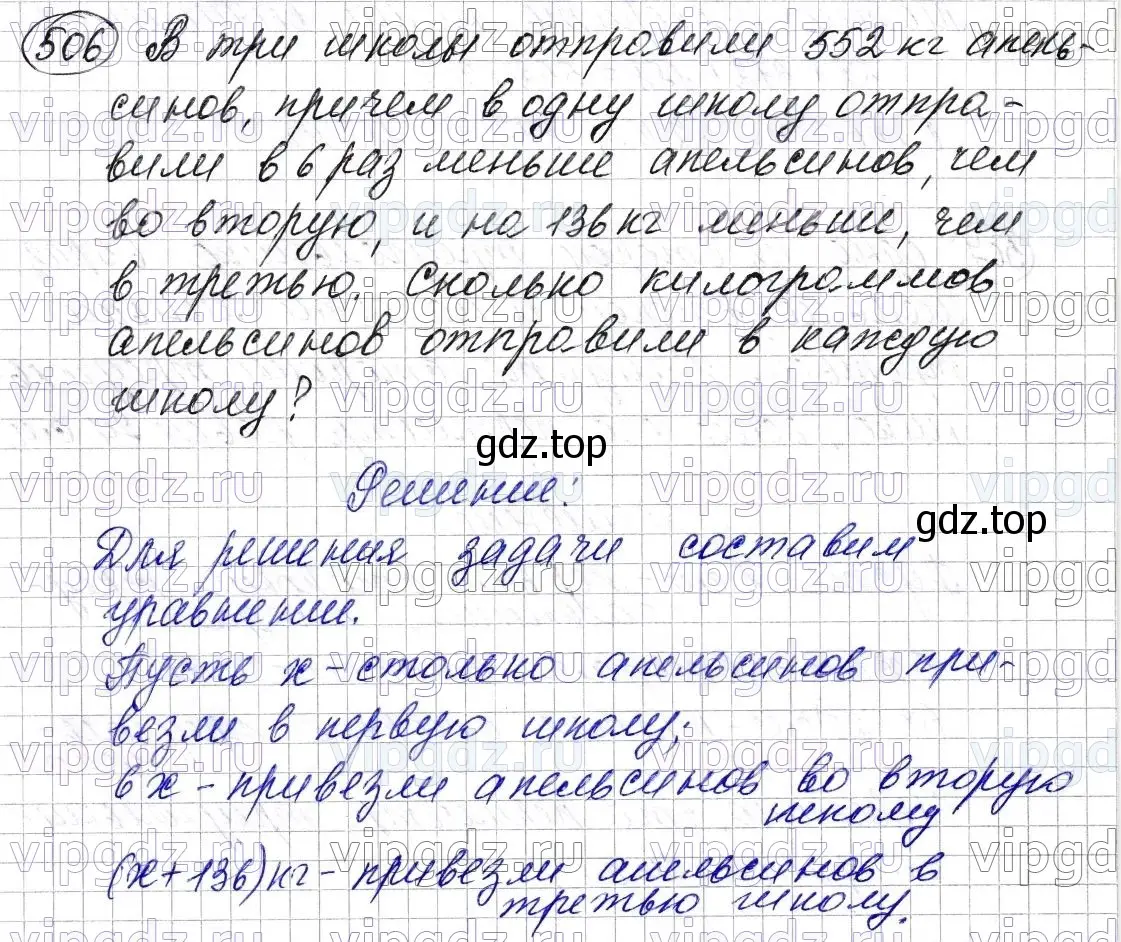 506 В три школы отправили 552 кг апель-
синов, причем в одну школу отпра-
вили в 6 раз меньше апельсинов, чем
во вторую, и на 136 кг меньше, чем
в третью. Сколько килограммов
апельсинов отправили в каждую
школу?
gdz.top
Решение:
gdz.top
Для решения задачи составим
уравнение.
Пусть х - столько апельсинов при-
везли в первую школу;
6х - привезли апельсинов во вторую
школу
(х + 136) кг - привезли апельсинов в
третью школу.
vipgdz.ru